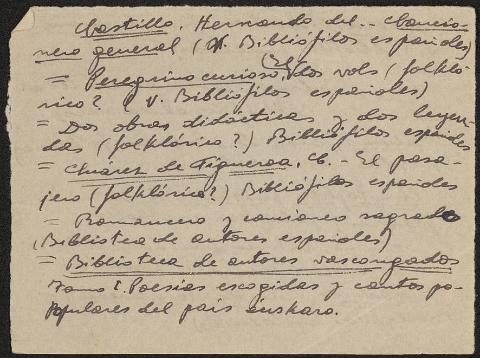 Castillo, Hernando del.- Cancio-
nero general (V. Bibliófilos españoles)
= Peregrino curioso, (El) dos vols (folkló-
rico? (V. Bibliófilos españoles)
= Dos obras didácticas y dos leyen-
das (folklórico?) Bibliófilos españoles
= Suárez de Figueroa, C.- El pasa-
jero (folklórico?) Bibliófilos españoles
= Romancero y cancionero sagrado
(Biblioteca de autores españoles)
= Biblioteca de autores vascongados
Tomo I. Poesías escogidas y cantos po-
populares del país éuskaro.